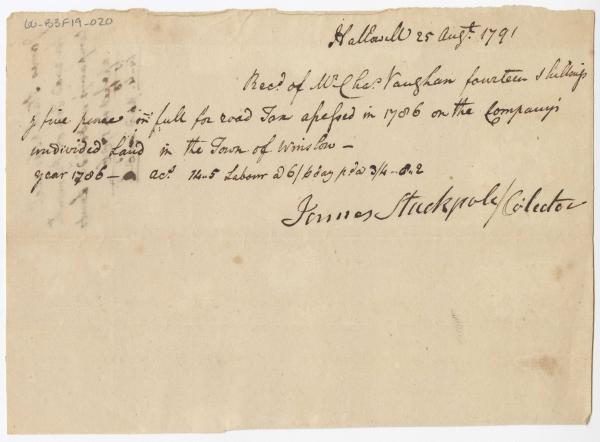 W-B3F19-020
Hallowell 25 Augt. 1791
Recd. of Mr. Chas. Vaughan fourteen shillings
& five pence in full for road Tax assessed in 1786 on the Company's
undivided Land in the Town of Winslow –
year 1786 – act. 14-5 Labour @ 6/ pr day pd @ 3/4 - 8.2
James Stackpole / Colector